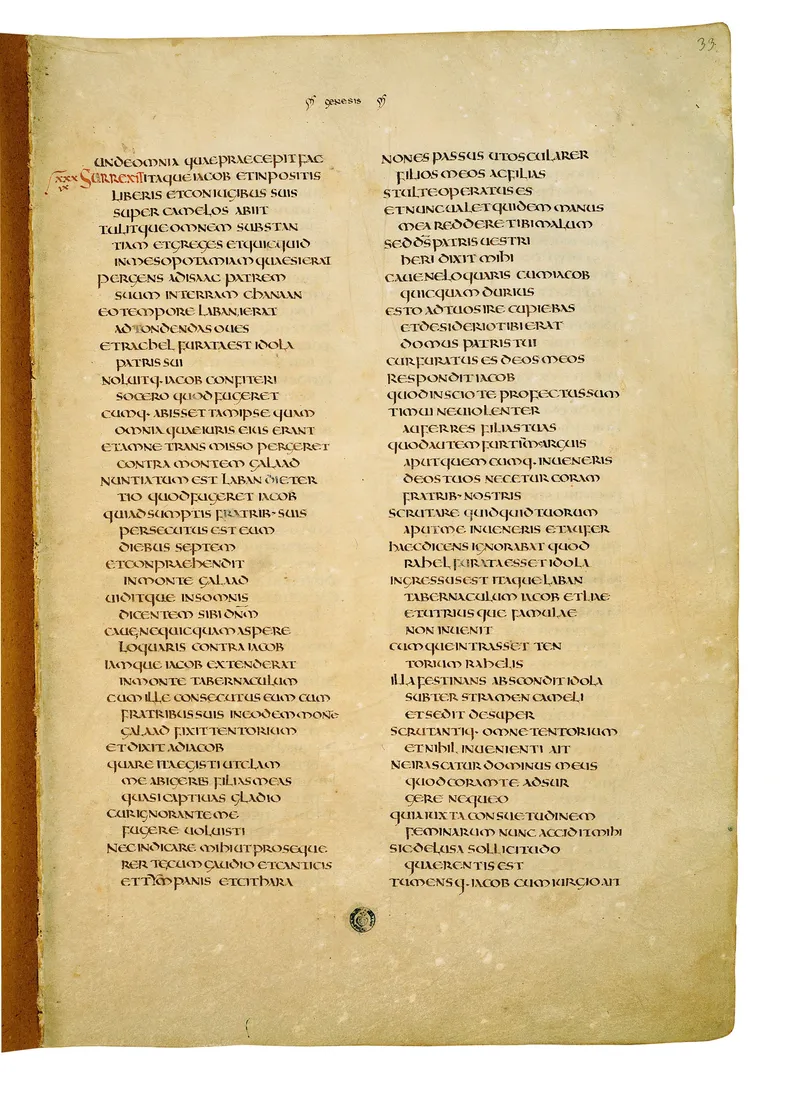 33
GENESIS
UNDEOMNIA QUAEPRAECEPIT FAC
XXX
IX
SURREXIT ITAQUE IACOB ETINPOSITIS
LIBERIS ETCONIUGIBUS SUIS
SUPER CAMELOS ABIIT
TULITQUE OMNEM SUBSTAN
TIAM ETGREGES ETQUICQUID
INMESOPOTAMIAM QUAESIERAT
PERGENS ADISAAC PATREM
SUUM INTERRAM CHANAAN
EOTEMPORE LABAN IERAT
ADTONDENDAS OUES
ETRACHEL FURATAEST IDOLA
PATRIS SUI
NOLUITQ· IACOB CONFITERI
SOCERO QUOD FUGERET
CUMQ· ABISSET TAM IPSE QUAM
OMNIA QUAE IURIS EIUS ERANT
ETAMNE TRANSMISSO PERGERET
CONTRA MONTEM GALAAD
NUNTIATUM EST LABAN DIETER
TIO QUOD FUGERET IACOB
QUI ADSUMPTIS FRATRIB· SUIS
PERSECUTUS EST EUM
DIEBUS SEPTEM
ETCONPRAEHENDIT
INMONTE GALAAD
UIDITQUE INSOMNIS
DICENTEM SIBI DN̄M
CAUE NEQUICQUAM ASPERE
LOQUARIS CONTRA IACOB
IAMQUE IACOB EXTENDERAT
INMONTE TABERNACULUM
CUM ILLE CONSECUTUS EUM CUM
FRATRIBUS SUIS INEODEM MONE
GALAAD FIXIT TENTORIUM
ETDIXIT ADIACOB
QUARE ITA EGISTI UT CLAM
ME ABIGERIS FILIAS MEAS
QUASI CAPTIUAS GLADIO
CUR IGNORANTE ME
FUGERE UOLUISTI
NEC INDICARE MIHI UT PROSEQUE
RER TECUM GAUDIO ETCANTICIS
ETTYMPANIS ETCITHARA
NONES PASSUS UTOSCULARER
FILIOS MEOS AC FILIAS
STULTE OPERATUS ES
ETNUNC UALET QUIDEM MANUS
MEA REDDERE TIBI MALUM
SED D̄S PATRIS UESTRI
HERI DIXIT MIHI
CAUE NE LOQUARIS CUM IACOB
QUICQUAM DURIUS
ESTO AD TUOS IRE CUPIEBAS
ETDESIDERIO TIBI ERAT
DOMUS PATRIS TUI
CUR FURATUS ES DEOS MEOS
RESPONDIT IACOB
QUOD INSCIO TE PROFECTUS SUM
TIMUI NE UIOLENTER
AUFERRES FILIAS TUAS
QUOD AUTEM FURTIM ARGUIS
APUT QUEM CUMQ· INUENERIS
DEOS TUOS NECETUR CORAM
FRATRIB· NOSTRIS
SCRUTARE QUIDQUID TUORUM
APUT ME INUENERIS ET AUFER
HAEC DICENS IGNORABAT QUOD
RAHEL FURATA ESSET IDOLA
INGRESSUS EST ITAQUE LABAN
TABERNACULUM IACOB ET LIAE
ETUTRIUSQUE FAMULAE
NON INUENIT
CUMQUE INTRASSET TEN
TORIUM RAHELIS
ILLA FESTINANS ABSCONDIT IDOLA
SUBTER STRAMEN CAMELI
ETSEDIT DESUPER
SCRUTANTIQ· OMNE TENTORIUM
ETNIHIL INUENIENTI AIT
NE IRASCATUR DOMINUS MEUS
QUOD CORAM TE ADSUR
GERE NEQUEO
QUIA IUXTA CONSUETUDINEM
FEMINARUM NUNC ACCIDIT MIHI
SIC DELUSA SOLLICITUDO
QUAERENTIS EST
TUMENSQ· IACOB CUM IURGIO AIT